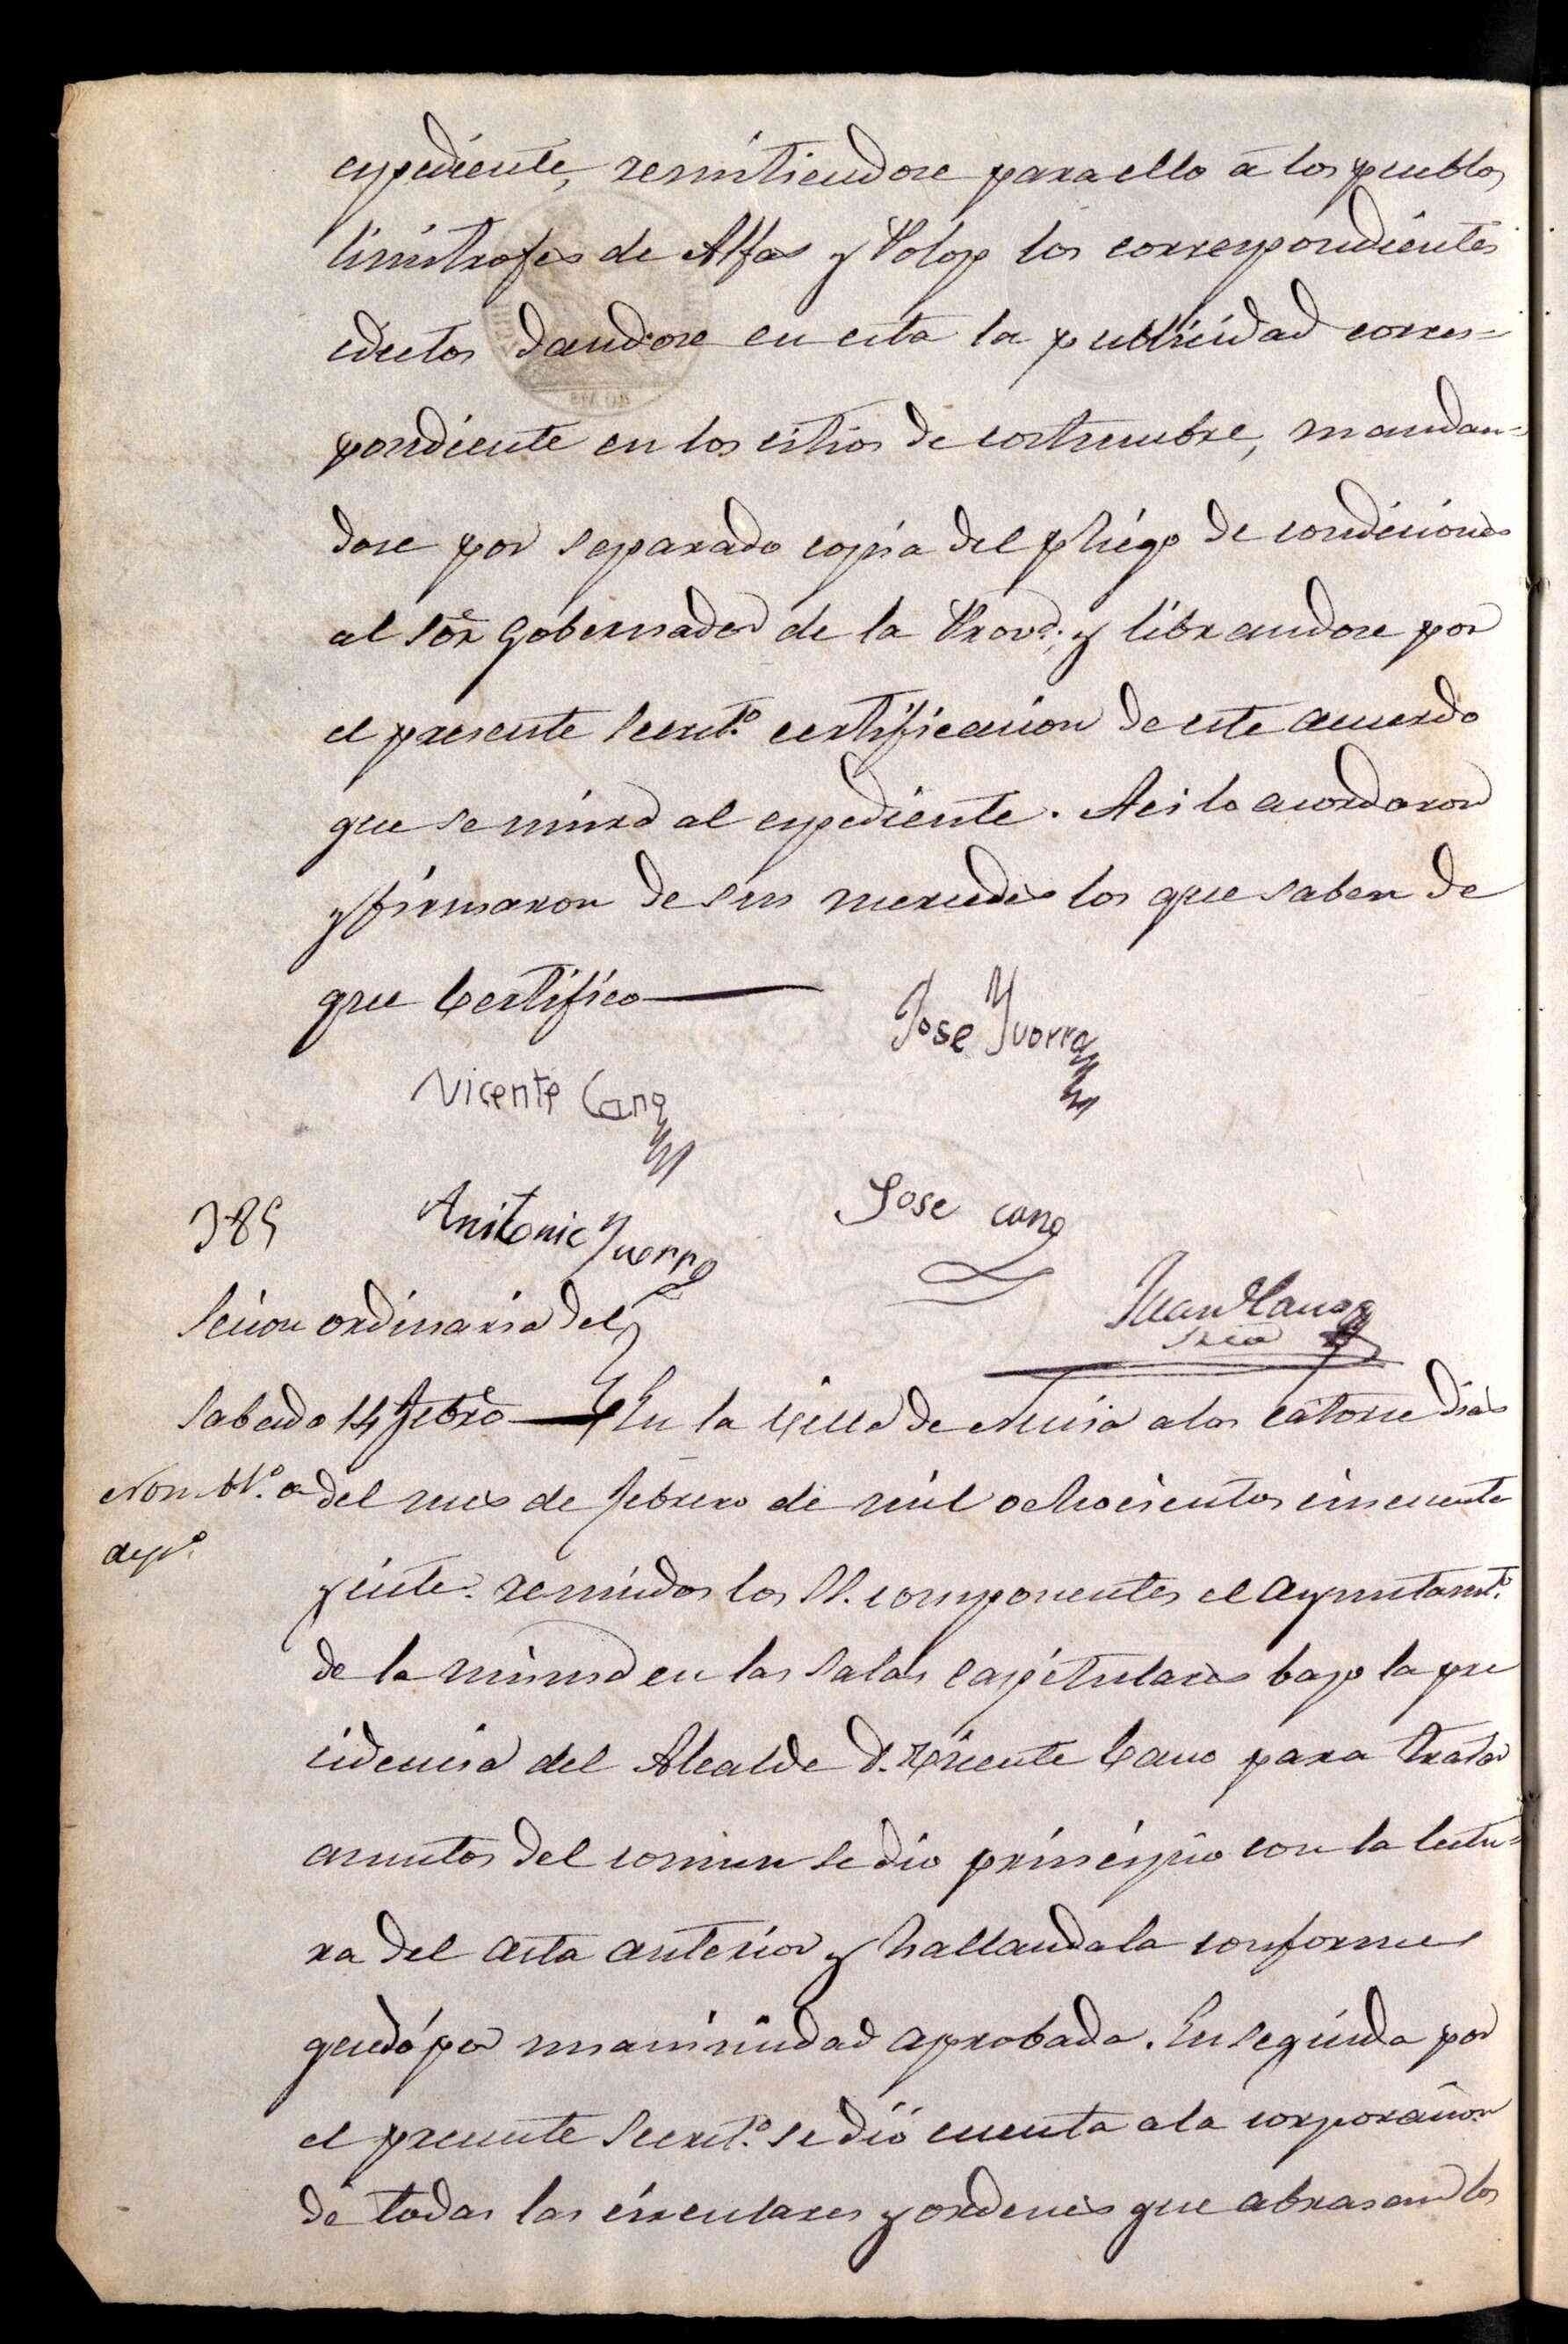 espediente, remitiendose para ello á los pueblos
limitrofes de Alfas y Polop los correspondientes
edictos dandose en esta la publicidad corres=
pondiente en los citios de costrumbre, mandan=
dose por separado copia del pliego de condiciones
al Sõr Gobernador de la Prova. y librandose por
el presente Secreto. certificacion de este acuerdo
que se unira al espediente. Asi lo acordaron
y firmaron de sus mercedes los que saben de
que Certifico
Jose Yvorra
Vicente Cano
Jose cano
Anitonio Yvorra
Juan
Srio
Secion ordinaria del
Sabado 14 Febro
Nombto. a
depo.
En la Villa de Nucia a los catorce dias
del mes de febrero de mil ochocientos cincuenta
y ciete. reunidos los SS. componentes el Ayuntamto.
de la misma en las Salas capitulares bajo la pre
cidencia del Alcalde D. Vicente Cano para tratar
asuntos del comun se dio principio con la lectu=
ra del acta anterior y hallandola conforme
quedó por unanimidad aprobada. En seguida por
el presente Secreto. se dió cuenta a la corporacion
de todas las circulares y ordenes que abrasan los